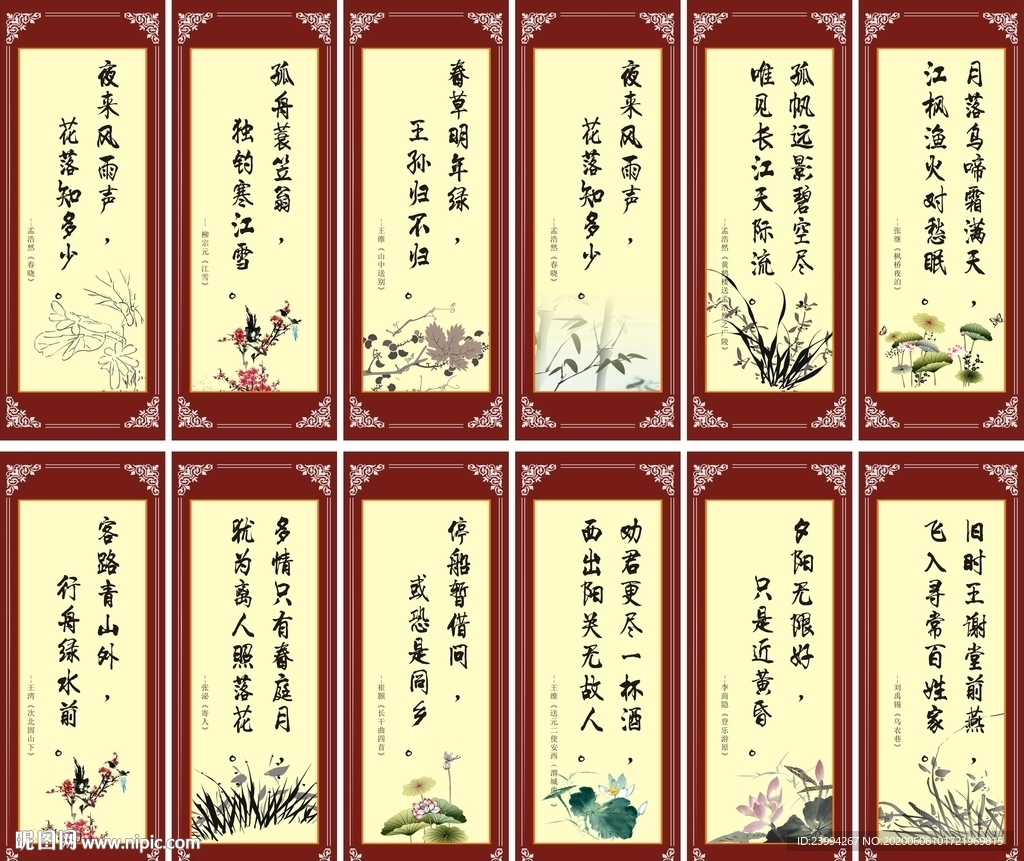 夜来风雨声，
花落知多少。
--孟浩然《春晓》
孤舟蓑笠翁，
独钓寒江雪。
--柳宗元《江雪》
春草明年绿，
王孙归不归。
--王维《山中送别》
夜来风雨声，
花落知多少。
--孟浩然《春晓》
孤帆远影碧空尽
唯见长江天际流
--孟浩然《黄鹤楼送孟浩然之广陵》
月落乌啼霜满天，
江枫渔火对愁眠。
--张继《枫桥夜泊》
客路青山外，
行舟绿水前。
--王湾《次北固山下》
多情只有春庭月，
犹为离人照落花。
--张泌《寄人》
停船暂借问，
或恐是同乡。
--崔颢《长干曲四首》
劝君更尽一杯酒，
西出阳关无故人。
--王维《送元二使安西（渭城曲
夕阳无限好，
只是近黄昏。
--李商隐《登乐游原》
旧时王谢堂前燕，
飞入寻常百姓家。
--刘禹锡《乌衣巷》
昵图网 www.nipic.com
ID:23994267 NO:20200606101721969815